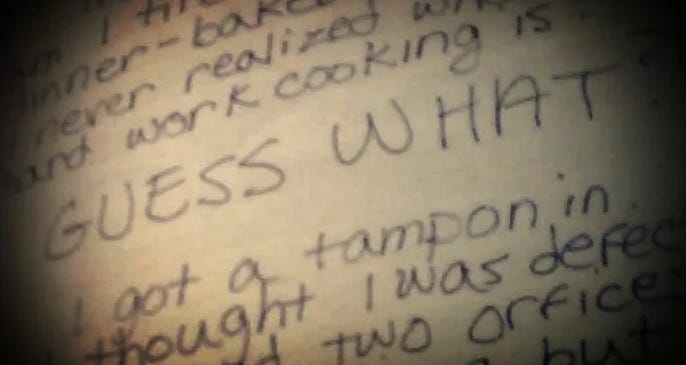 am I tire
dinner-baked
never realized wh
hard work cooking is.
GUESS WHAT?
I got a tampon in.
thought I was defec
two office
but